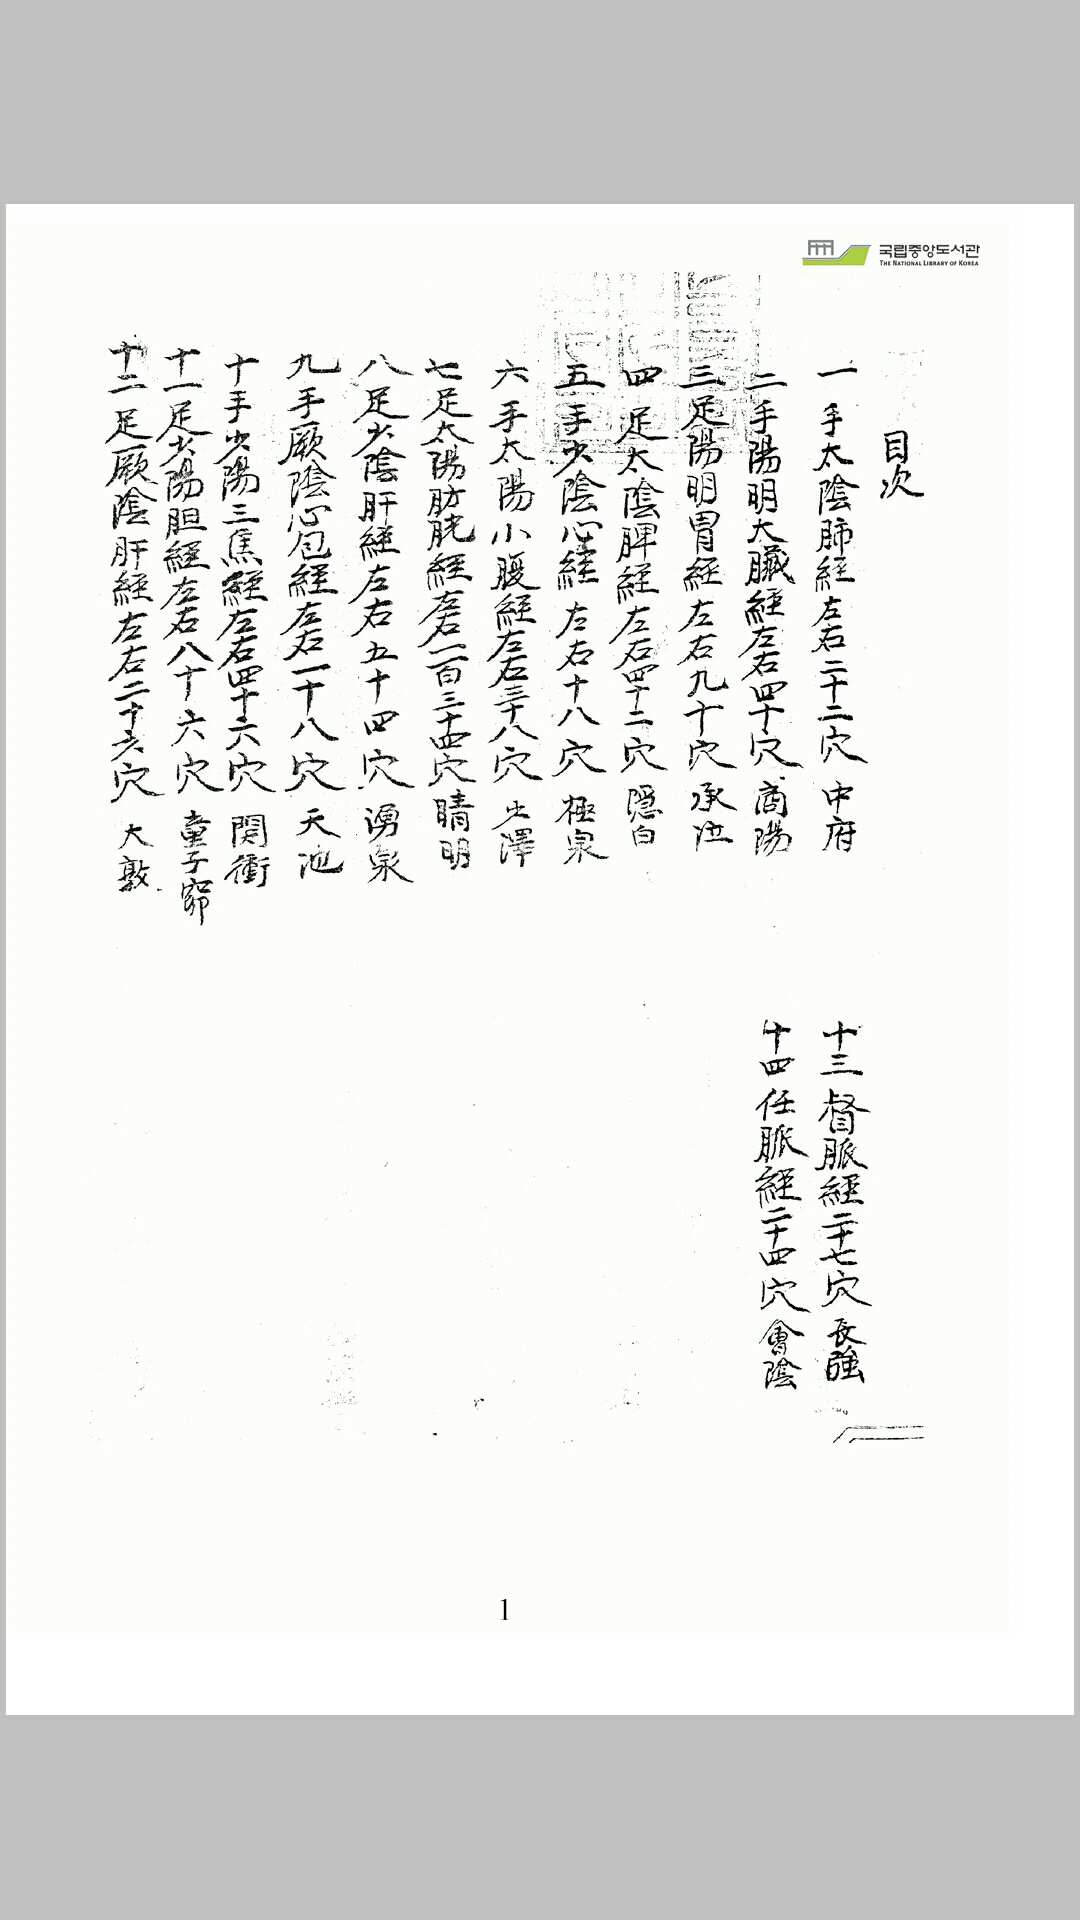 국립중앙도서관
THE NATIONAL LIBRARY OF KOREA
目次
一 手太陰肺經左右二十二穴 中府
二 手陽明大臟經左右四十穴 商陽
三 足陽明胃經左右九十穴 承泣
四 足太陰脾經左右四十二穴 隱白
五 手少陰心經左右十八穴 極泉
六 手太陽小腹經左右三十八穴 少澤
七 足太陽肪胱經左右一百三十四穴 睛明
八 足少陰肝經左右五十四穴 湧泉
九 手厥陰心包經左右一十八穴 天池
十 手少陽三焦經左右四十六穴 関衝
十一 足少陽胆經左右八十六穴 童子窌
十二 足厥陰肝經左右二十六穴 大敦
十三 督脈經二十七穴 長強
十四 任脈經二十四穴 會陰
1